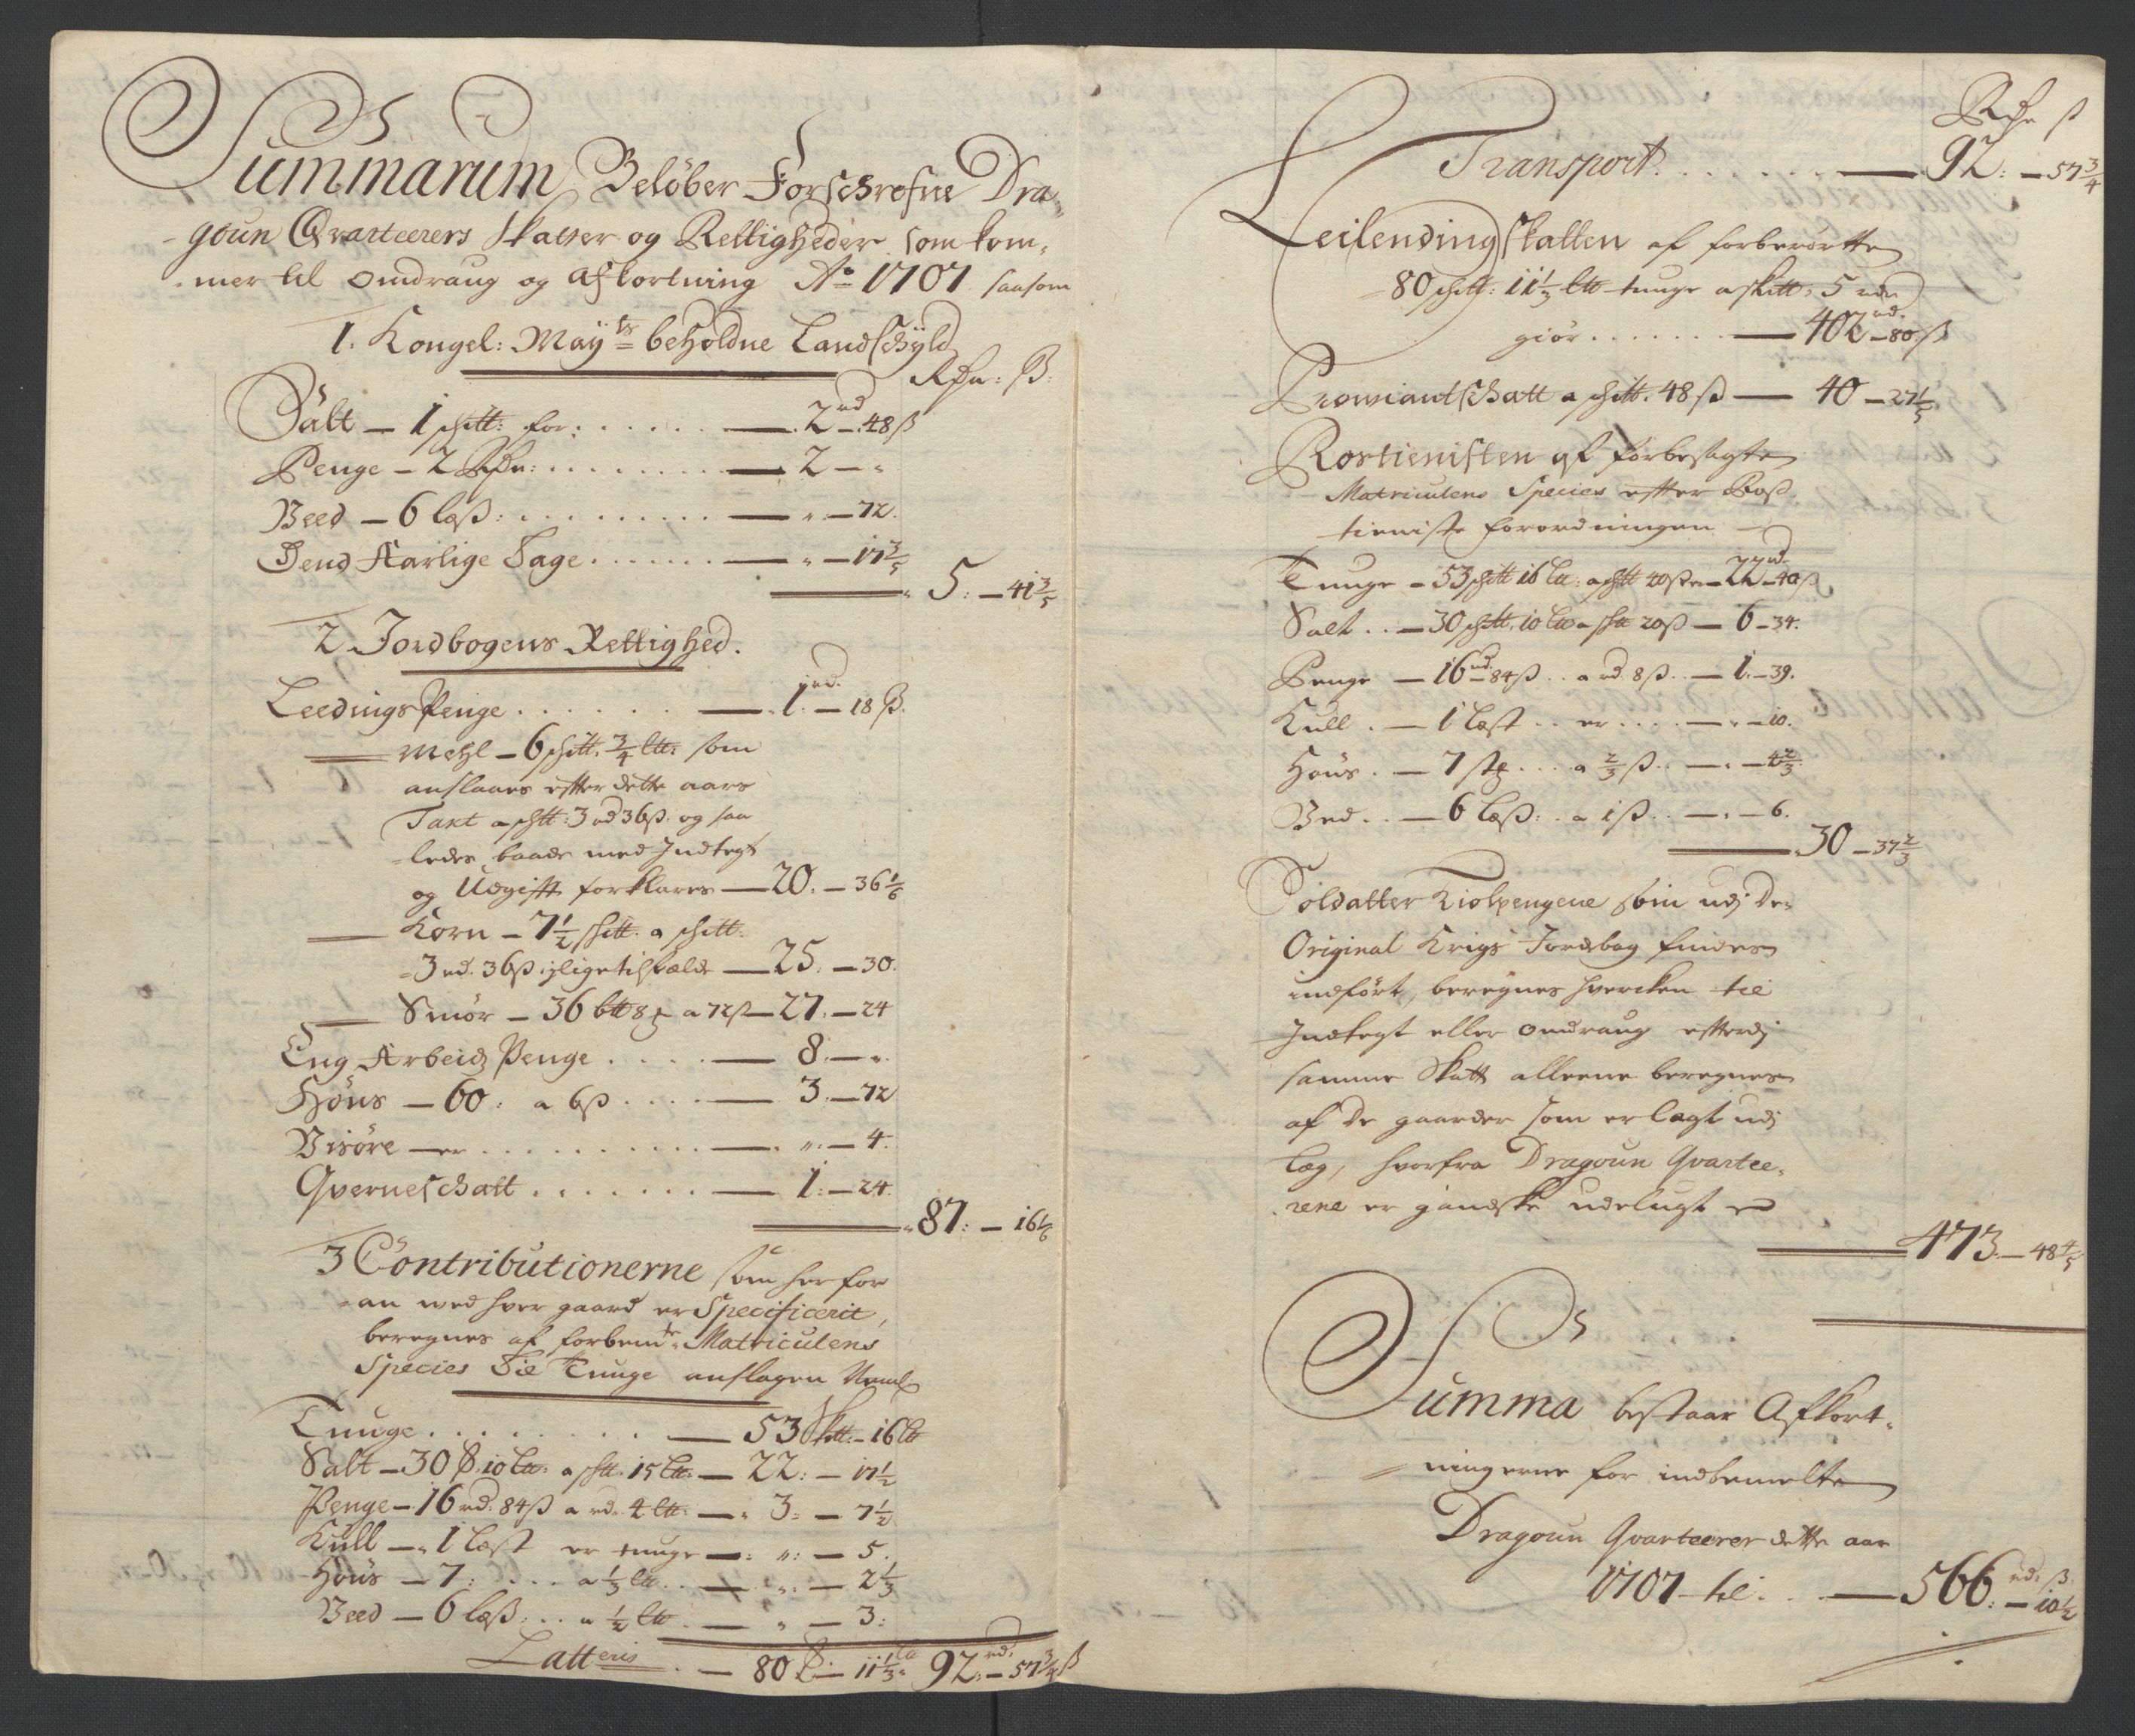 Summarum Beløber Forschrefne Dra-
goun Qvarteerers Skatter og Rettigheder som kom-
mer til omdraug og Afkortning Ao 1707 saasom
1. Kongel: Mayts beholdne Landschyld
Rdr: ß:
Salt – 1 schtt: for: . . . . . . — 2 rd – 48 ß
Penge – 2 Rdr: . . . . . . . — 2 – „
Veed – 6 læss: . . . . . . . . . — „ – 72.
Dend Aarlige Tage . . . . . . — „ – 17 3/5
5: – 41 3/5
2 Jordbogens Rettighed.
Leedings Penge . . . . . . — 1 rd. – 18 ß.
— Mehl – 6 schtt. 3/4 ltt: som
anslaaes efter dette aars
Taxt a schtt: 3 rd 36 ß. og saa
ledes baade med Indtegt
og Udgifft forklares — 20. – 36 1/6
— Korn – 7 1/2 schtt. a schtt.
3 rd. 36 ß iligetilfælde — 25. – 30.
— Smør – 36 btt 8 a 72 ß — 27. – 24
Eng Arbeids Penge . . . . — 8. – „
Høns – 60. a 6 ß . . . . — 3. – 72
Visøre – er . . . . . . . . . . — „ – 4.
Qverneschatt . . . . . . . — 1: – 24.
87: – 16 1/6
3 Contributionerne som her for
an med hver gaard er Specificerit,
beregnes af forbemte Matriculens
Species Til Tunge anslagen Neml
Tunge . . . . . . . . — 53 Schtt. – 16 ltt
Salt – 30 S. 10 ltt: a schtt. 15 ltt: — 22: – 17 1/2
Penge – 16 rd. 84 ß a rd. 4 ltt: — 3: – 7 1/2
Kull – 1 læst er tunge — „: – 5.
Høns – 7: . . . a 1/3 ltt . . — „. – 2 1/3
Veed – 6 læss: . . a 1/2 ltt . — „ – 3:
Latteris . – 80 S – 11 1/3 ltt 92 rd. – 57 3/4 ß
Rdr ß
Transport . . . . . . . — 92: – 57 3/4
Leilending skatten af forberørtte
80 schtt: 11 1/3 ltt tunge a schtt: 5 rdr
giør . . . . . . . — 402 rd. – 80 ß
Prowiantschatt a schtt. 48 ß — 40 – 27 1/5
Rostienisten af forbesagte
Matriculens Species efter Ross
tieniste forordningen
Tunge – 53 schtt 16 ltt: a schtt 40 ß er – 22 rd. – 40 ß
Salt . . – 30 schtt. 10 ltt a schtt 20 ß — 6 – 34.
Penge – 16 rd. 84 ß . . a rd. 8 ß . . — 1. – 39.
Kull . – 1 læst . . er . . . — „ – 10.
Høns . – 7 stk . . . a 2/3 ß . . — „ – 4 2/3
Ved . . – 6 læss: . . a 1 ß . . — „ – 6.
30 – 37 2/3
Soldatter Kiolpengene som udj De
Original Krigs Jordebog findes
indført, beregnes hvercken til
Indtegt eller omdraug efterdj
samme Skatt alleene beregnes
af de gaarder som er lagt udj
læg, hvorfra Dragoun Qvartee-
rene er gandske udelugt
473. – 48 4/5
Summa bestaar Afkort-
ningerne for indbemelte
Dragoun Qvarteerer dette aar
1707 til . . . — 566 rd. – 10 1/2 ß